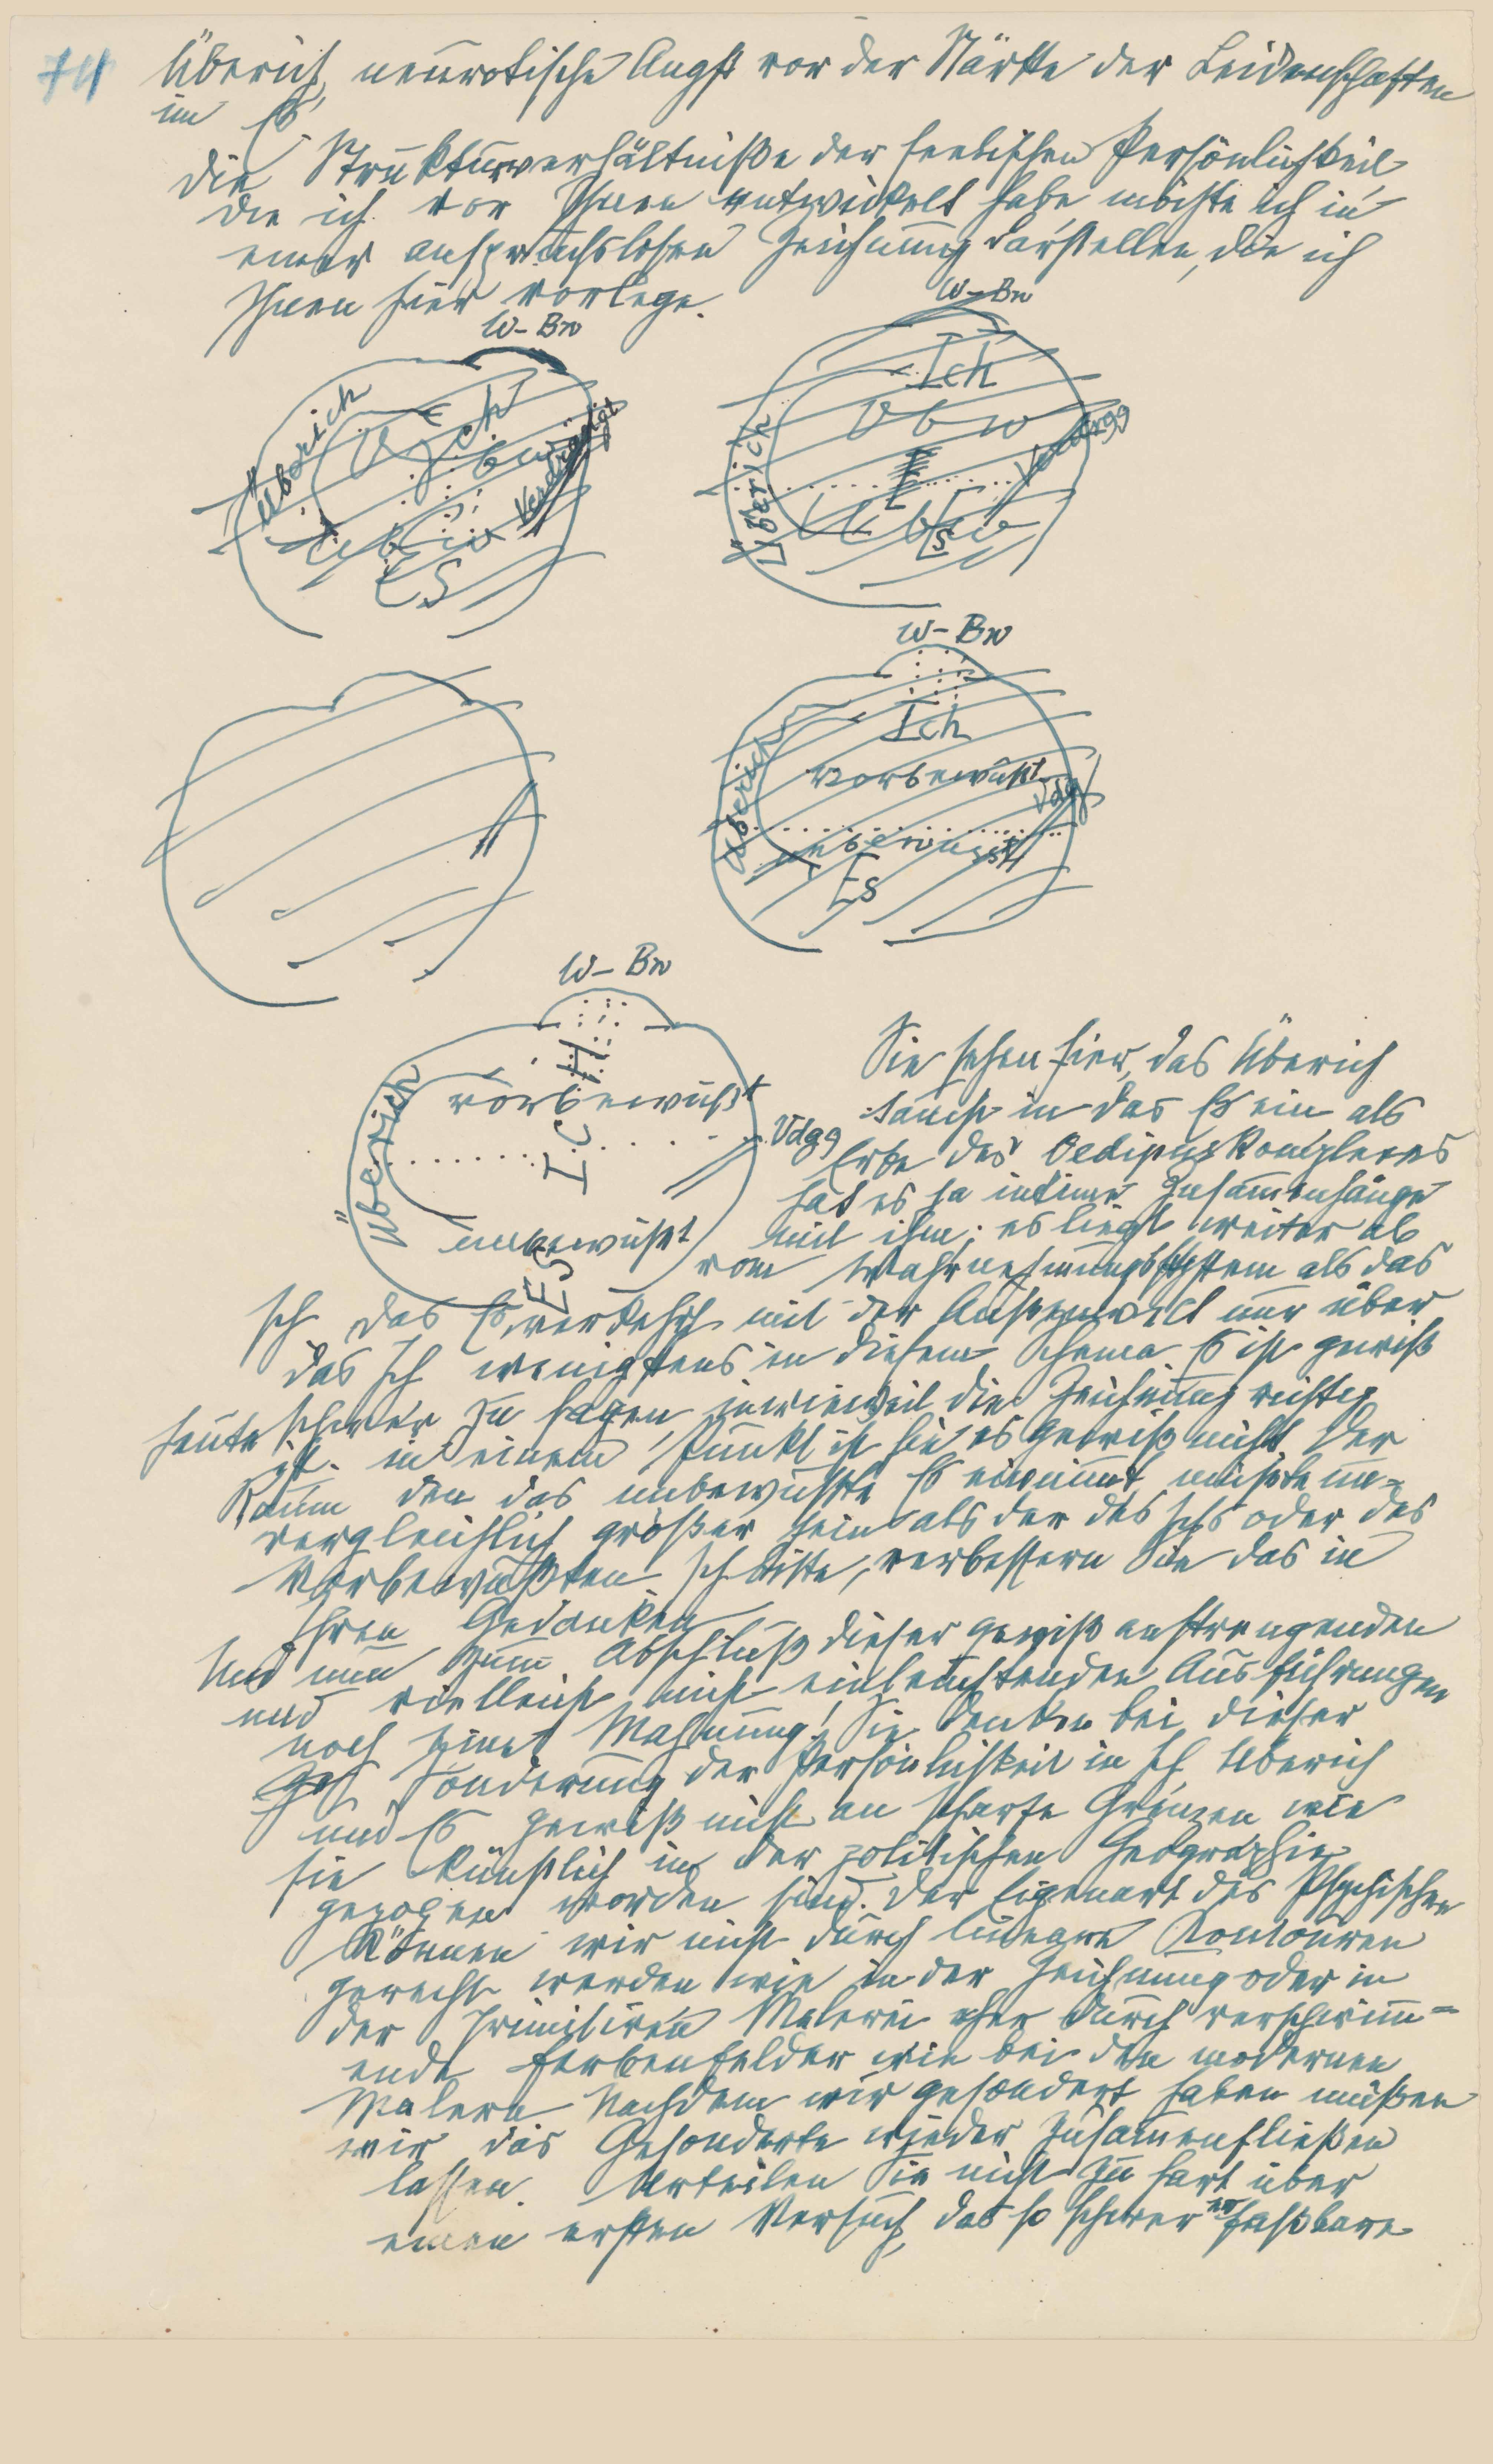 74
Überich, neurotische Angst vor der Stärke der Leidenschaften
im Es
Die Strukturverhältniße der seelischen Persönlichkeit
die ich vor Ihnen entwickelt habe möchte ich in
einer anspruchslosen Zeichnung darstellen, die ich
Ihnen hier vorlege.
W-Bw
Überich
Ich
Vbw
Verdrängt
Ubw
Es
W-Bw
Ich
Vbw
Überich
Verdrgg
Ubw
Es
W-Bw
Ich
Überich
vorbewußt
Vdg
unbewusst
Es
W-Bw
ICH
Überich
vorbewußt
Vdgg
unbewußt
ES
Sie sehen hier, das Überich
taucht in das Es ein als
Erbe des Oedipuskomplexes
hat es ja intime Zusammenhänge
mit ihm; es liegt weiter ab
vom Wahrnehmungssystem als das
Ich. Das Es verkehrt mit der Außenwelt nur über
das Ich wenigstens in diesem Schema Es ist gewiß
heute schwer zu sagen inwieweit die Zeichnung richtig
ist. in einem Punkt ist sie es gewiß nicht. Der
Raum den das unbewußte Es einnimmt müßte un=
vergleichlich größer sein als der des Ichs oder des
Vorbewußten. Ich bitte, verbessern Sie das in
Ihren Gedanken
Und nun zum Abschluß dieser gewiß anstrengenden
und vielleicht nicht einleuchtenden Ausführungen
noch eine Mahnung! Sie denken bei dieser
Sonderung der Persönlichkeit in Ich Überich
und Es gewiß nicht an scharfe Grenzen wie
sie künstlich in der politischen Geographie
gezogen worden sind. Der Eigenart des Psychischen
können wir nicht durch lineare Kontouren
gerecht werden wie in der Zeichnung oder in
der primitiven Malerei eher durch verschwimm=
ende Farbenfelder wie bei den modernen
Malern Nachdem wir gesondert haben müßen
wir das Gesonderte wieder zusammenfließen
lassen. Urteilen Sie nicht zu hart über
einen ersten Versuch, das so schwer erfaßbare